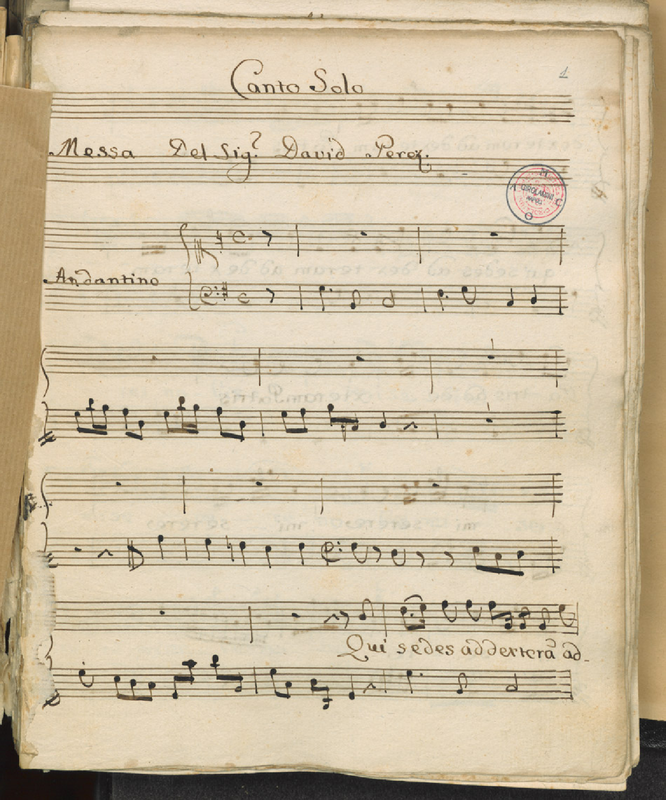 Canto Solo
1
Messa Del Sig.ʳ David Perez.
Andantino
Qui sedes ad dexterã ad